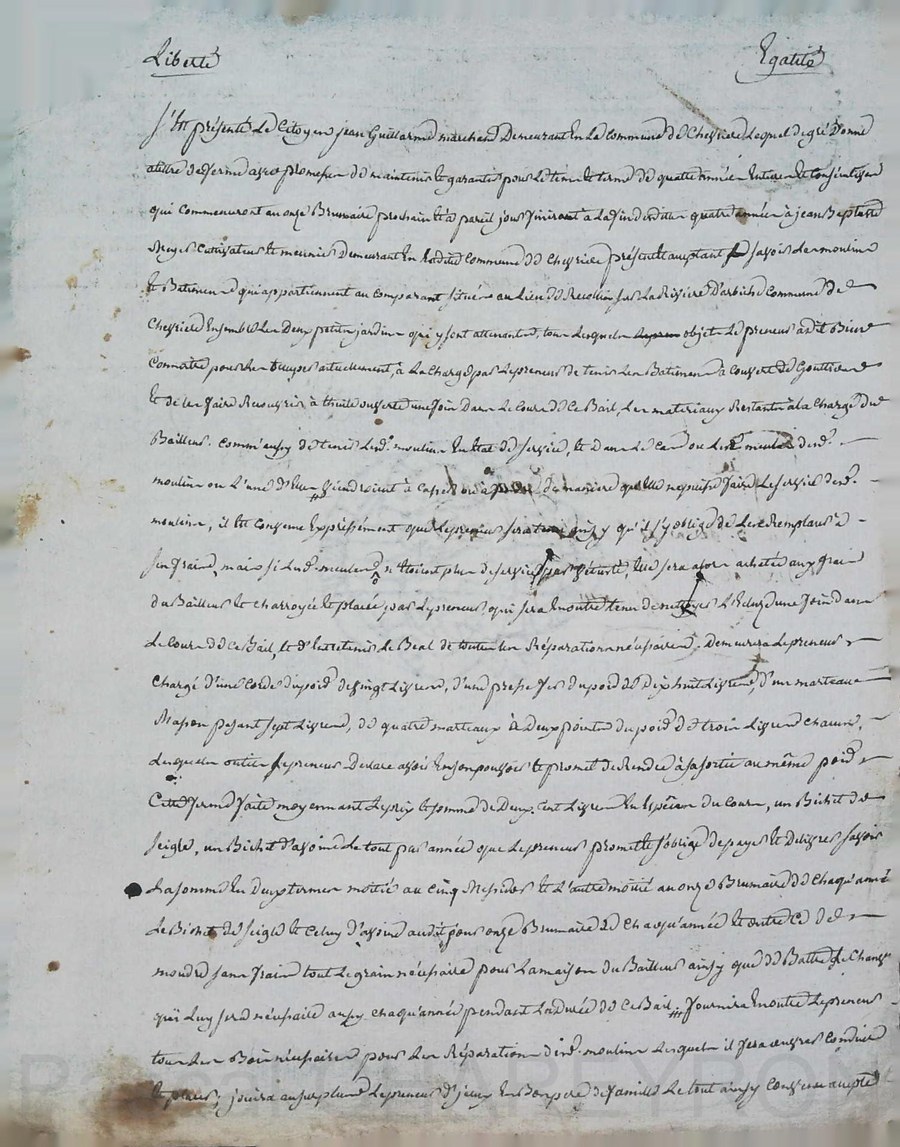 Liberté Egalité
S'Est présenté Le Citoyen jean Guillarme marchand Demeurant En La Commune de Cheyrieu Lequel de gré Donne
atiltre de ferme avec promesse de maintenir Et garantir pour Le tems Et terme de quatre années Entieres Et Consécutives
qui Commenceront au onze Brumaire prochain Et à pareil jour finiront à La fin desdites quatre années à jean Baptiste
Cultivateur Et meunier Demeurant En Ladite Commune de présent Et acceptant savoir Les moulins
Et Batiment qui appartiennent au Comparant situés au Lieu de sur La Riviere Commune de
Ensemble Les Deux petits jardins qui y sont attenants, tous Lesquels objets Le preneur a dit Bien
Connoitre pour Les actuellement, à La Charge par Le preneur de tenir Les Batiments à Couvert de Gouttieres
Et de Les faire Recouvrir à thuile ouverte une fois Dans Le Cours de Ce Bail, Les materiaux Restants à La Charge du
Bailleur. Comm'aussy de tenir Lesd. moulins En Etat de service, Et Dans Le Cas ou Les meules desd.
moulins ou L'une d'Elles viendroient à Casser ou de maniere qu'elle ne puisse faire Le service desd.
moulins, il Est Convenu Expressément que Le preneur sera tenu ainsy qu'il s'y oblige de Les Remplacer à
ses fraix, mais si Lesd. meules n'Etoient plus de service par vétusté, Elle sera alors achetée aux fraix
du Bailleur Et Charroyée Et placée par Le preneur, qui sera En outre tenu de nettoyer L'Ecluze une fois Dans
Le Cours de Ce Bail, Et d'Entretenir Le Beal de toutes Les Réparations nécessaires. Demeurera Le preneur
Chargé d'une Corde du poid de vingt Livres, d'une presse fer du poid de Dix huit Livres, d'un marteau
Masson pesant sept Livres, de quatre marteaux à Deux pointes du poid de trois Livres Chacun,
Lesquels outils Le preneur Declare avoir En son pouvoir Et promet de Rendre à sa sortie au même poid
Cette ferme faite moyennant Le prix Et somme de Deux Cent Livres En Espèces du Cours, un Bichet de
seigle, un Bichet d'avoine Le tout par année que Le preneur promet Et s'oblige de payer Et Delivrer savoir
La somme En deux termes moitié au Cinq Messidor Et L'autre moitié au onze Brumaire de Chaqu'année
Le Bichet de seigle Et Celuy d'avoine audit jour onze Brumaire de Chaqu'année Et outre Ce de
moudre sans fraix tout Le grain nécessaire pour La maison du Bailleur ainsy que de Battre Le Chanvre
qui Luy sera nécessaire aussy chaqu'année pendant La Durée de Ce Bail. fournira En outre Le preneur
tous Les Bois nécessaires pour Les Réparations desd. moulins Lesquels il fera ouvrer Conduire
Et placer; jouira au surplus Le preneur d'iceux En Bon pere de famille Le tout ainsy Convenu accepté